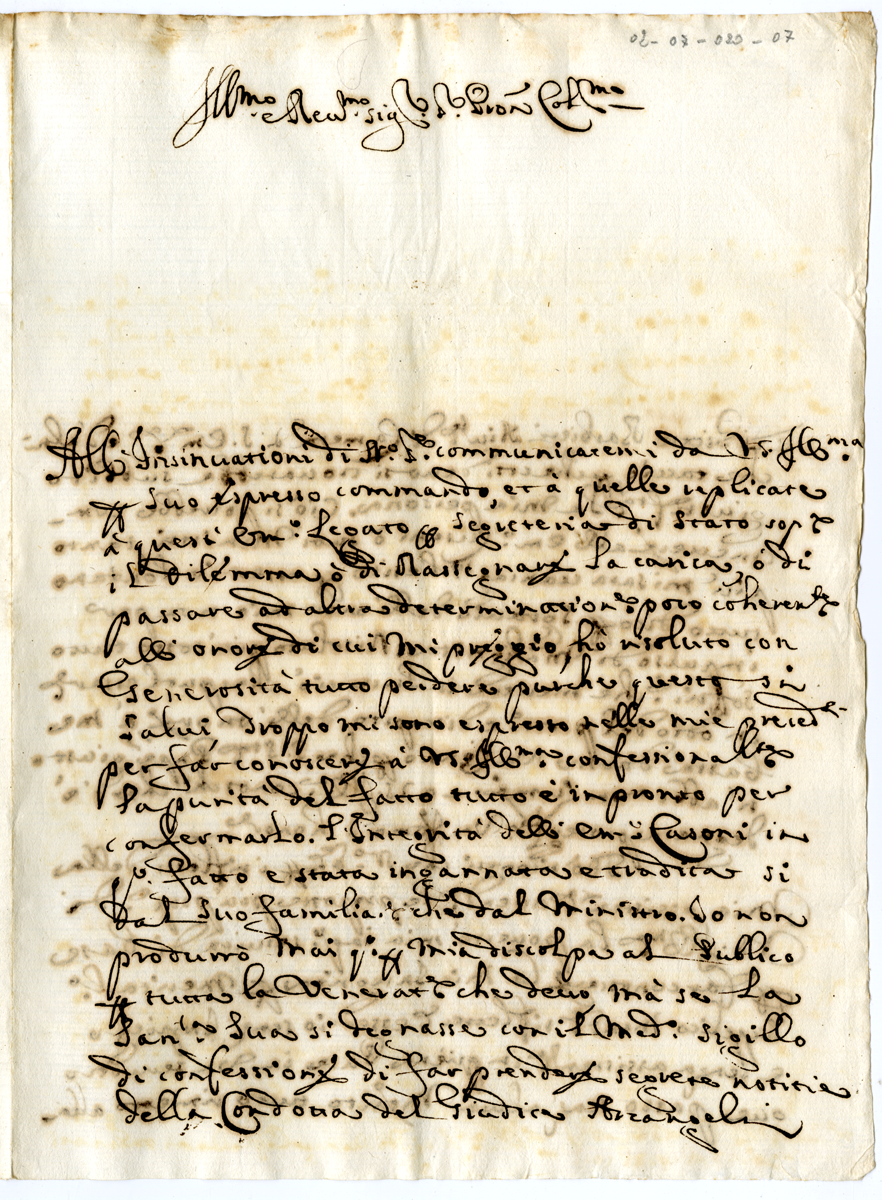 02-07-020-07
Ill.mo e Rev.mo Sig.r S.r Pron Col.mo
Alli Insinuationi di N.ro S.re communicatemi da V.S. Ill.ma
suo espresso commando, et à quelle replicate
à questi Em.o Legato Segreteria di Stato sop.a
il dilemma ò di Rassegnare la carica, ò di
passare ad altra determinatione poco coherente
alli onori di cui mi preggio, hò risoluto con
Generosità tutto perdere, purche questo si
salvi, Troppo mi sono espresso nelle mie preced.ti
per far conoscere à V.S. Ill.ma confessionalte
la purità del fatto tutto è in pronto per
confermarlo. L'Integrità dell' Em.o Casoni in
q.o fatto e stata ingannata e tradita si
dal Suo familiare che dal Ministro. Io non
produrrò mai q.a mia discolpa al Publico
tutta la Venerat.e che devo, mà se la
San.tà Sua si degnasse con il Med.o sigillo
di confessione di far prendere segrete notitie
della Condotta del Giudice Arcangeli